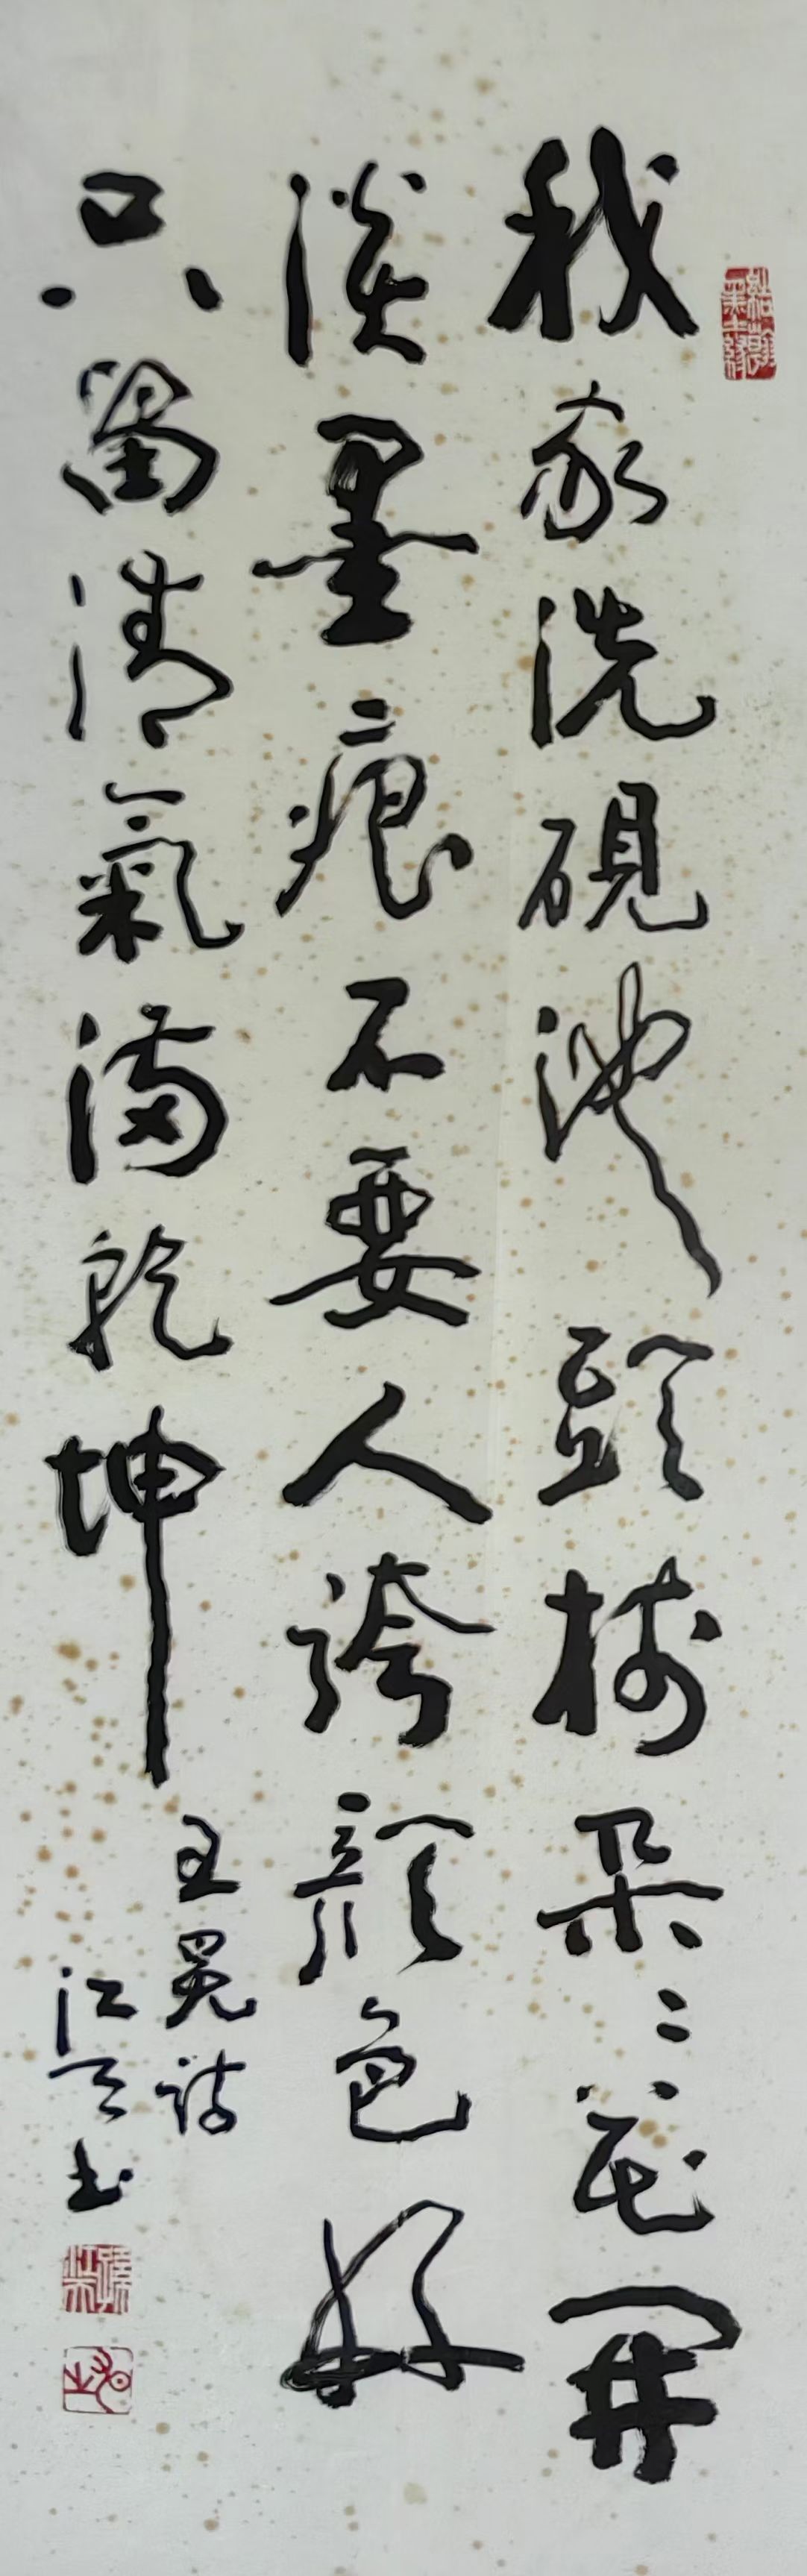 我家洗硯池頭樹朵〻花開
淡墨痕不要人誇顏色好
只留清氣滿乾坤
王冕詩
江天书